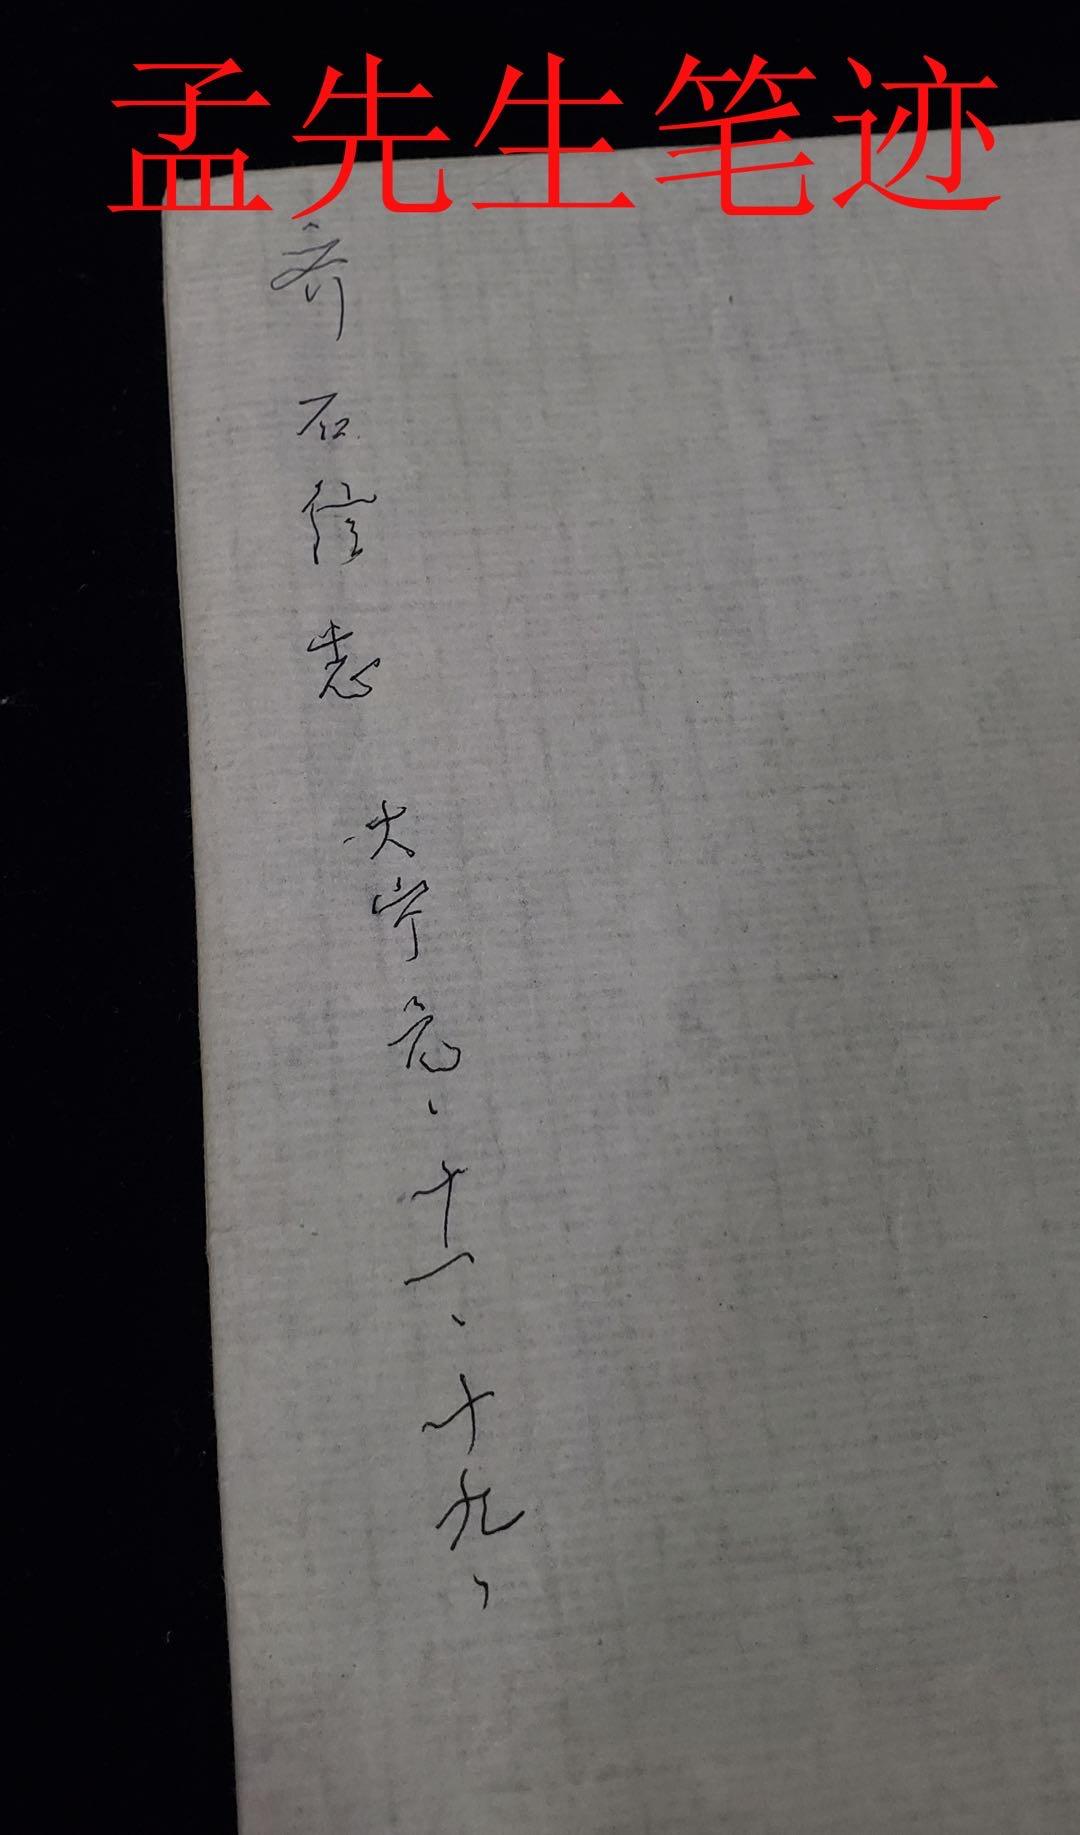 孟先生笔迹
齐 石信志
大宁元、十一、十九、